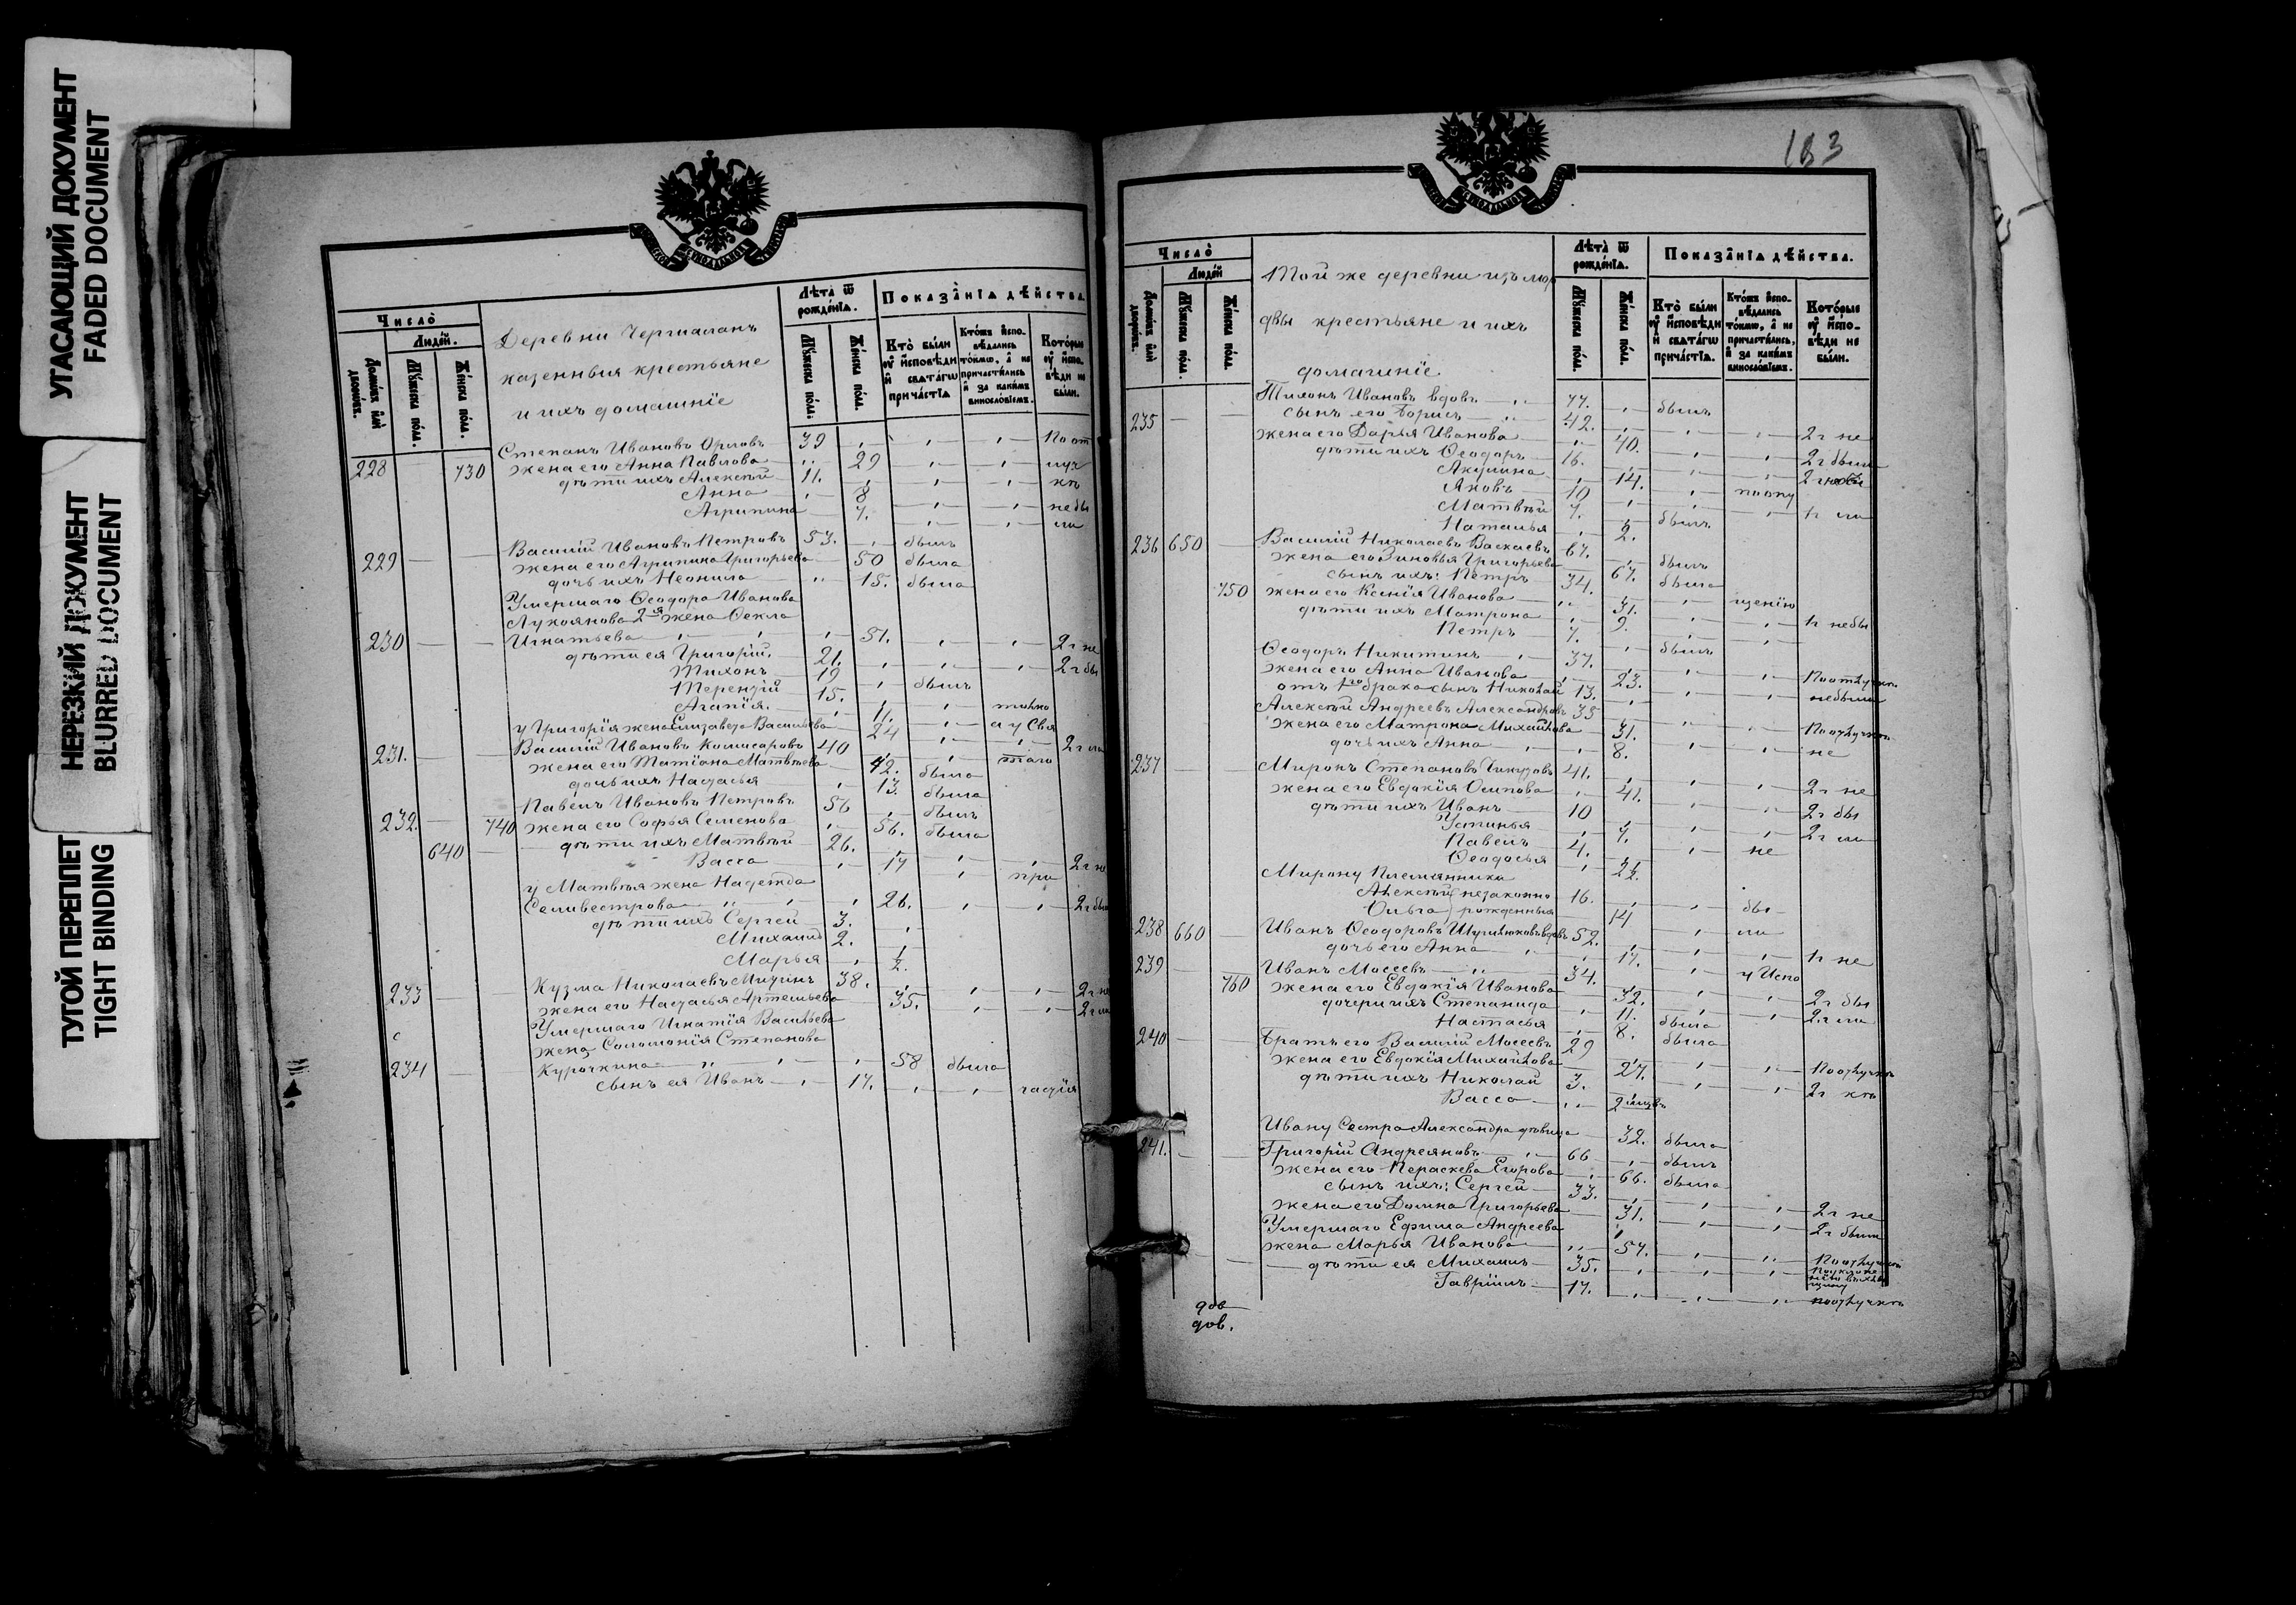 УГАСАЮЩИЙ ДОКУМЕНТ
FADED DOCUMENT
НЕРЕЗКИЙ ДОКУМЕНТ
BLURRED DOCUMENT
ТУГОЙ ПЕРЕПЛЕТ
TIGHT BINDING
Число̀
Людѐй.
Домѡ́въ или̑ дворѡ́въ.
Мꙋ́жеска по́ла.
Же́нска по́ла.
Деревни
казенныя крестьяне
и ихъ домашніе
Лѣта̀ ѿ рожде́нїѧ.
Мꙋ́жеска по́ла.
Же́нска по́ла.
Показа̑нїѧ дѣ́йства.
Кто̀ бы́ли ᲂу҆ и҆сповѣди и҆ свѧта́гѡ прича́стїѧ
Кто́жъ и҆сповѣдались то́кмѡ, а҆ не причасти́лись и҆ за каки́мъ винослов́їемъ.
Кото́рые ᲂу҆ и҆сповѣди не бы́ли.
Степанъ Ивановъ Орловъ 39 По от
228 730 жена его Анна Павлова 29 луч
дѣти ихъ Алексѣй 11. кѣ
Анна 8 небы
Агрипина 7. ли
Василій Ивановъ Петровъ 53. былъ
229 жена его Агрипина Григорьева 50 была
дочь ихъ Неонила 15. была
Умершаго Ѳеодора Иванова
Лукоянова 2я жена Ѳекла
230 Игнатьева 51. 2 г не
дѣти ея Григорій. 21. 2 г бы
Тихонъ 19 былъ
Терентій 15.
Агапія. 11. токмо
у Григорія жена Елизавета Васильева 24 а у Свя
231. Василій Ивановъ Комисаровъ 40 2 г ли
жена его Татіана Матвѣева 42. была таго
дочь ихъ Настасья 13. была
Павелъ Ивановъ Петровъ 56 былъ
232. 740 жена его Софья Семенова 56. была
640 дѣти ихъ Матвѣй 26.
Васса 17 при 2 г не
у Матвѣя жена Надежда
Селивестрова 26. 2 г был
дѣти ихъ Сергей 3.
Михаилъ 2.
Марья ½.
Кузма Николаевъ 38. 2 г не
233 жена его Настасья Артемьева 35. 2 г ли
Умершаго Игнатія Васильева
жена Соломонія Степанова
234 Курочкина 58 была
сынъ ея Иванъ 17. частія
183
Число̀
Людѐй
Домѡ́въ или̑ дворѡ́въ.
Мꙋ́жеска по́ла.
Же́нска по́ла.
Той же деревни изъ мор
двы крестьяне и ихъ
домашніе.
Лѣта̀ ѿ рожде́нїѧ.
Мꙋ́жеска по́ла.
Же́нска по́ла.
Показа̑нїѧ дѣ́йства.
Кто̀ бы́ли ᲂу҆ и҆сповѣди и҆ свѧта́гѡ прича́стїѧ.
Кто́жъ и҆сповѣдались то́кмѡ, а҆ не причасти́лись, и҆ за каки́мъ винослов́їемъ.
Кото́рые ᲂу҆ и҆сповѣди не бы́ли.
Тихонъ Ивановъ вдовъ 77. былъ
235 сынъ его Борисъ 42. 2 г не
жена его Дарья Иванова 40. 2 г были
дѣти ихъ Ѳеодоръ 16.
Акулина 14.
Яковъ 10 1 г ли
Матвѣй 7. былъ
Наталья 2.
236 650 Василій Николаевъ Васкаевъ 67. былъ
жена его Зиновья Григорьева 67. была
сынъ ихъ: Петръ 34. щенію
750 жена его Ксенія Иванова 31. 1 г небы
дѣти ихъ Матрона 9.
Петръ 7. былъ
Ѳеодоръ Никитинъ 37.
жена его Анна Иванова 23. По отлучкѣ
отъ 1го брака сынъ Николай 13. небыли
Алексѣй Андреевъ Александровъ 35
жена его Матрона Михайлова 31. По отлучкѣ
дочь ихъ Анна 8. не
237 Миронъ Степановъ 41. 2 г не
жена его Евдокія Осипова 41. 2 г бы
дѣти ихъ Иванъ 10 2 г ли
Устинья 7.
Павелъ 4. не
Ѳеодосья ½.
Мирону Племянники
Алексѣй незаконно 16. бы
Ольга рожденныя 14 ли
238 660 Иванъ Ѳеодоровъ вдовъ 52.
дочь его Анна 17. 1 г не
239 Иванъ Мосеевъ 34. у Испо
760 жена его Евдокія Иванова 32. 2 г бы
дочери ихъ Степанида 11. была 2. г ли
Настасья 8. была
240 Братъ его Василій Мосеевъ 29
жена его Евдокія Михайлова 27. По отлучкѣ
дѣти ихъ Николай 3. 2 г кѣ
Васса 2 мѣсяцвъ
Ивану Сестра Александра дѣвица 32. была
241. Григорій Андреяновъ 66 былъ
жена его Пераскева Егорова 66. была
сынъ ихъ: Сергей 33.
жена его Домна Григорьева 31. 2 г не
Умершаго Ефима Андреева 2 г были
жена Марья Иванова 57. По отлучкѣ
дѣти ея Михаилъ 35.
Гавріилъ 17. по отлучкѣ
дов
дов.